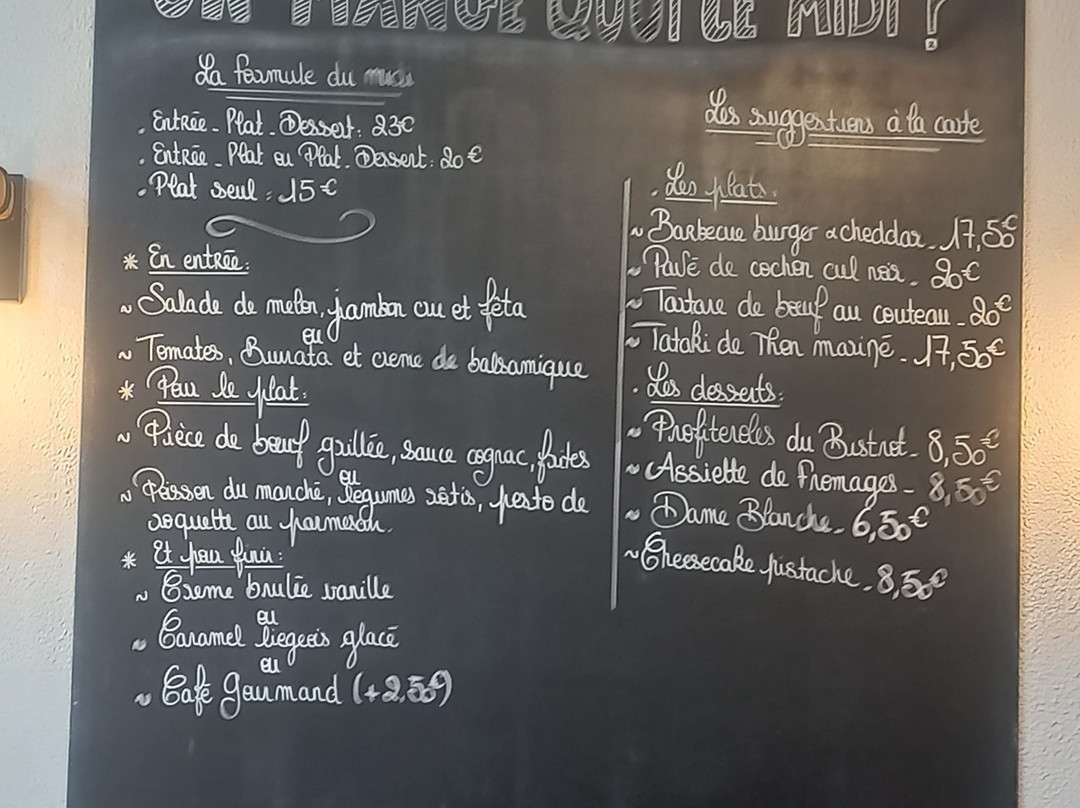 ON MANGE QUOI LE MIDI ?
La formule du midi
. Entrée - Plat - Dessert : 23€
. Entrée - Plat ou Plat - Dessert : 20€
. Plat seul : 15€
* En entrée :
~ Salade de melon, jambon cru et fêta
ou
~ Tomates, Burrata et creme de balsamique
* Pour le plat :
~ Pièce de boeuf grillée, sauce cognac, frites
ou
~ Poisson du marché, légumes rôtis, pesto de
roquette au parmesan.
* Et pour finir :
~ Creme brulée vanille
ou
~ Caramel liegeois glacé
ou
~ Café Gourmand (+2,50€)
Les suggestions à la carte
. Les plats.
~ Barbecue burger cheddar - 17,50€
~ Pavé de cochon cul noir - 20€
~ Tartare de boeuf au couteau - 20€
~ Tataki de Thon mariné - 17,50€
. Les desserts :
~ Profiteroles du Bistrot - 8,50€
~ Assiette de fromages - 8,50€
~ Dame Blanche - 6,50€
~ Cheesecake pistache - 8,50€